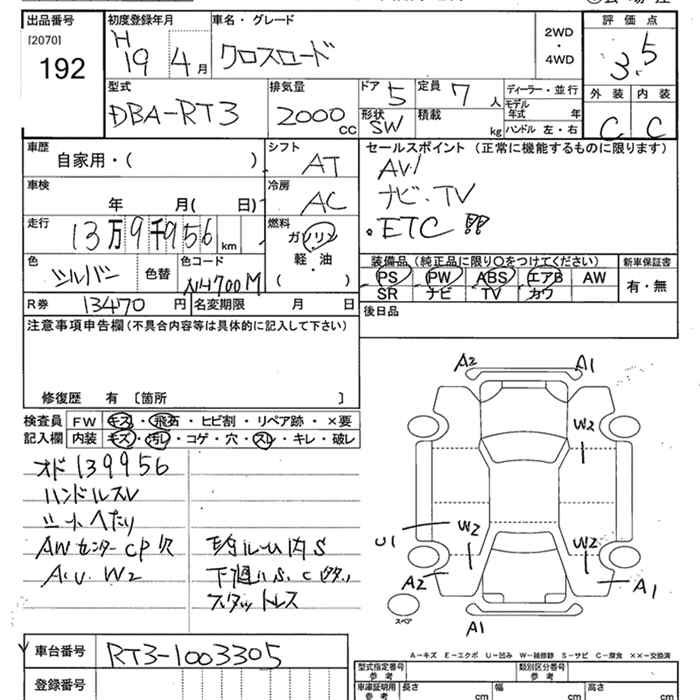 出品番号 初度登録年月 車名・グレード 2WD・4WD 評価点
[2070] 192
H19 4月 クロスロード 3.5
型式 排気量 ドア 5 定員 7人 ディーラー・並行 外装 内装
DBA-RT3 2000cc 形状 SW 積載 kg モデル年式 年 C C
ハンドル 左・右
車歴 シフト セールスポイント (正常に機能するものに限ります)
自家用・( ) AT AV!
車検 冷房 ナビ・TV
年 月( 日) AC ・ETC !!
走行 燃料
13万9千956km ガソリン・軽・油・( )
装備品 (純正品に限り○をつけてください) 新車保証書
PS PW ABS エアB AW 有・無
SR ナビ TV カワ
色 シルバー 色替 色コード NH700M
R券 13470円 名変期限 月 日 後日品
注意事項申告欄(不具合内容等は具体的に記入して下さい)
修復歴 有 [箇所 ]
検査員記入欄 FW キズ・飛石・ヒビ割・リペア跡・×要
内装 キズ・汚れ・コゲ・穴・スレ・キレ・破レ
オド 139956
ハンドルスレ
シートへたり
AWセンターCP欠
A.U.W2
ルーム内S
下廻りS.C
スタットレス
A2 A1
W2
U1 W2 W2
A2 A1
スペア
A1
A-キズ E-エクボ U-凹み W-補修跡 S-サビ C-腐食 ××-交換済
車台番号 RT3-1003305
型式指定番号 参考 類別区分番号 参考
登録番号
車庫証明用 参考 長さ cm 幅 cm 高さ cm